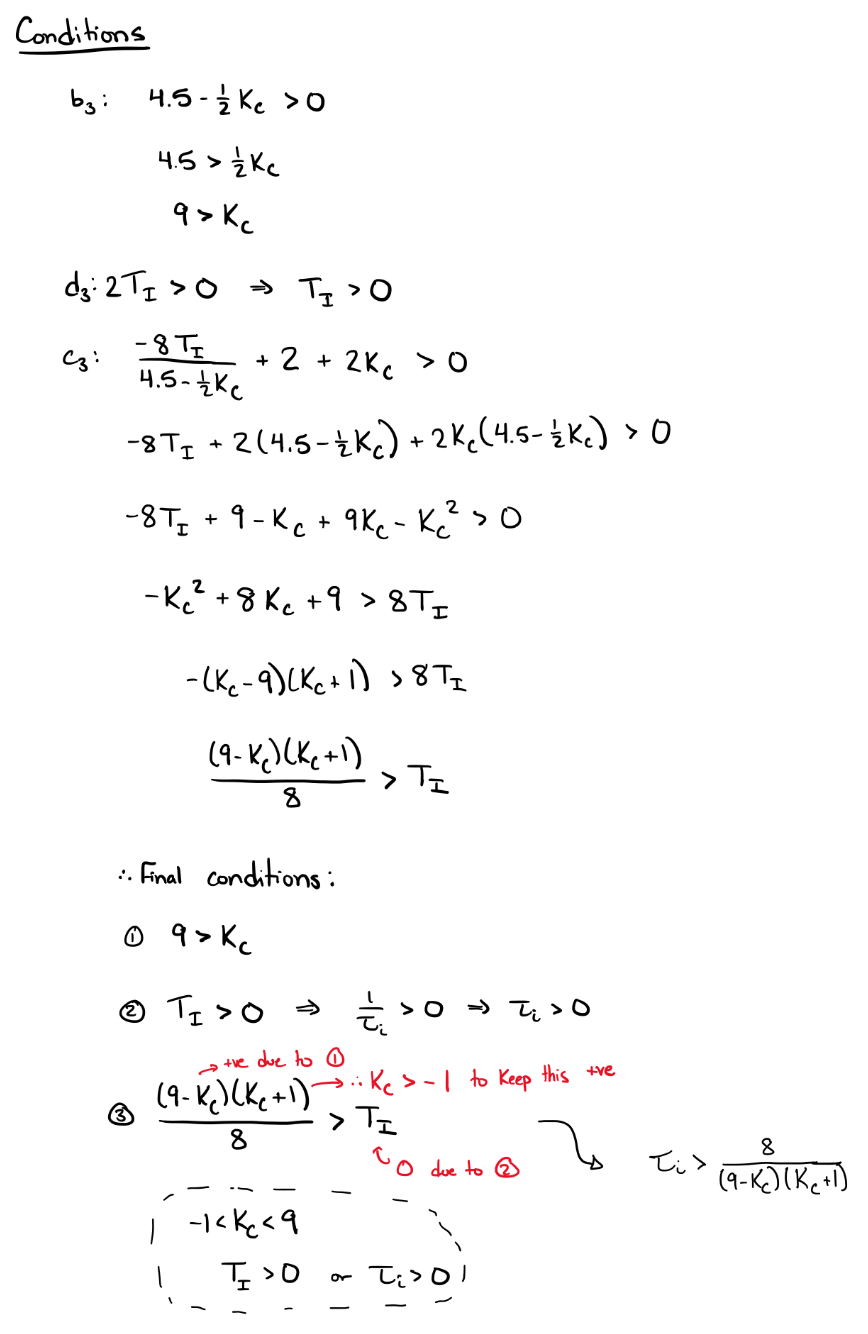 Conditions
b₃: 4.5 - ½ K_c > 0
4.5 > ½ K_c
9 > K_c
d₃: 2T_I > 0 ⇒ T_I > 0
c₃: (-8 T_I)/(4.5 - ½ K_c) + 2 + 2K_c > 0
-8T_I + 2(4.5 - ½ K_c) + 2K_c(4.5 - ½ K_c) > 0
-8T_I + 9 - K_c + 9K_c - K_c² > 0
-K_c² + 8 K_c + 9 > 8T_I
-(K_c - 9)(K_c + 1) > 8 T_I
(9 - K_c)(K_c + 1)/8 > T_I
∴ Final conditions:
① 9 > K_c
② T_I > 0 ⇒ 1/τ_i > 0 ⇒ τ_i > 0
→ +ve due to ①
→ ∴ K_c > -1 to keep this +ve
③ (9 - K_c)(K_c + 1)/8 > T_I
0 due to ②
τ_i > 8/((9 - K_c)(K_c + 1))
-1 < K_c < 9
T_I > 0 or τ_i > 0